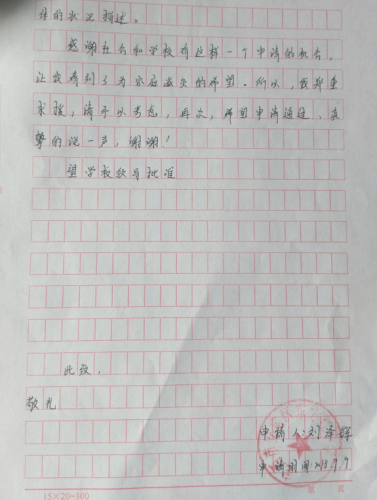 的状况描述。
感谢社会和学校有这样一个申请的机会,
让我看到了为家庭减负的希望。所以,我郑重
求援,请予以考虑,再次,希望申请通过、真
挚的说一声,谢谢!
望学校领导批准
此致,
敬礼
申请人:刘泽辉
申请时间:2013.9.7
15×20=300
页